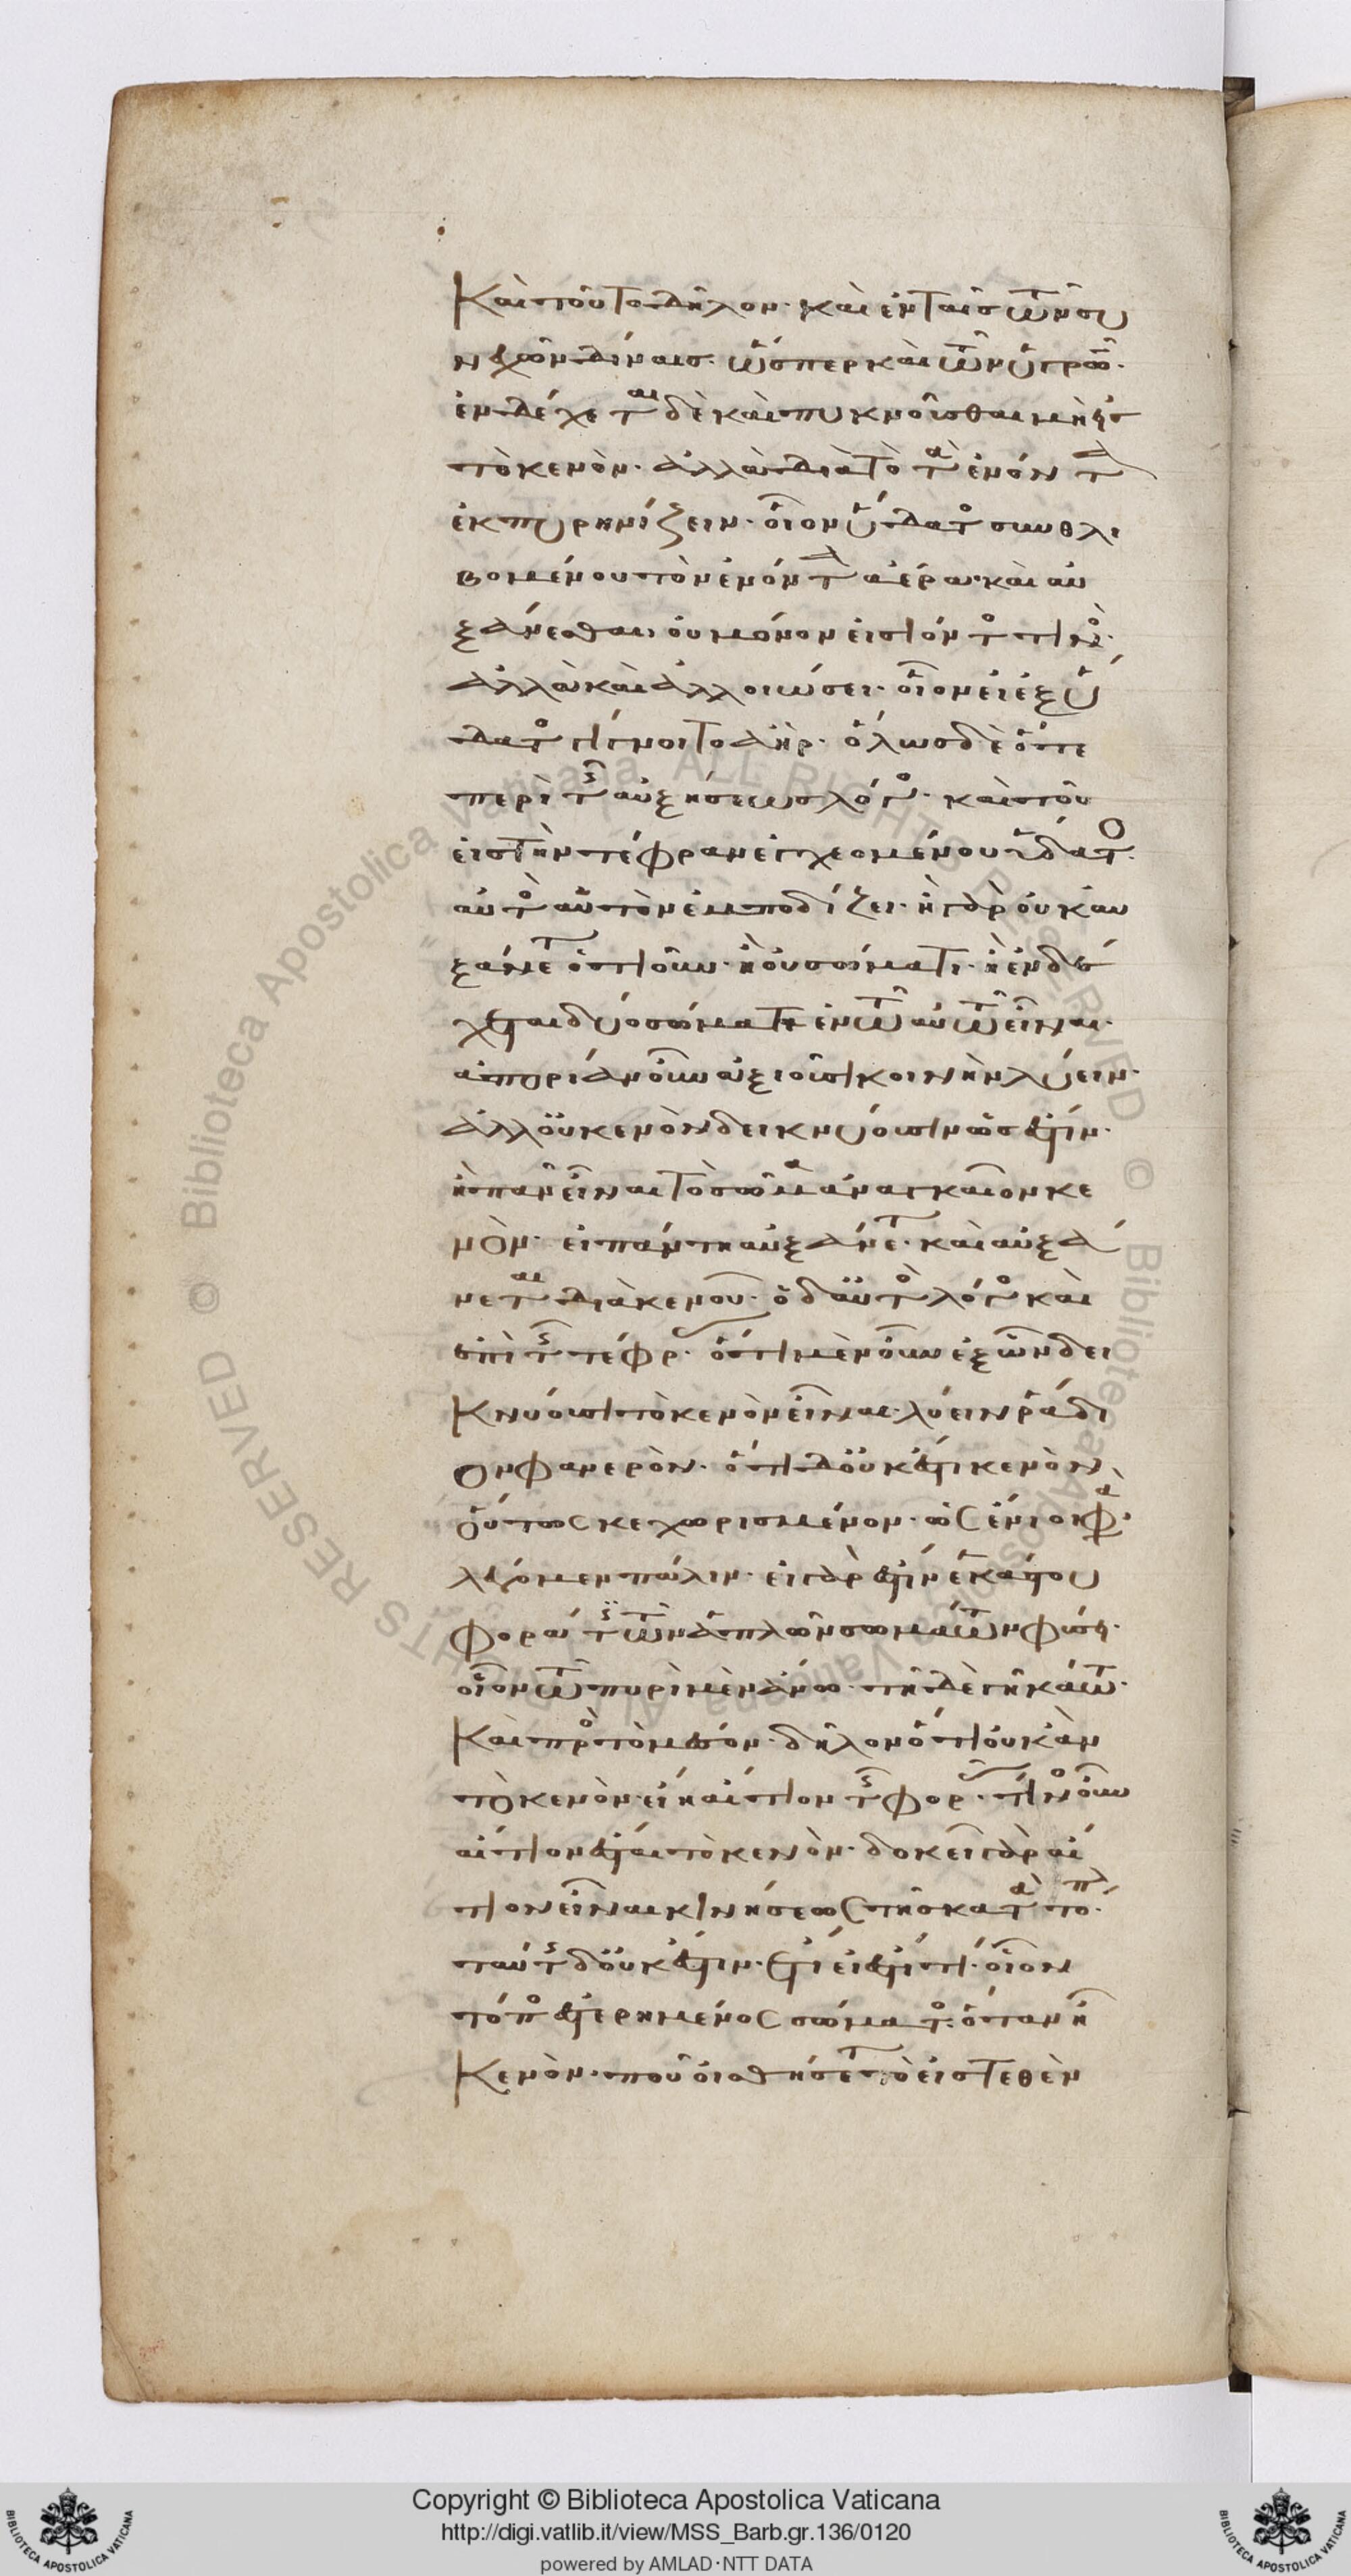 Καὶ τοῦτο δῆλον· καὶ ἐν ταῖς τῶν συ
νεχῶν δίναις· ὥσπερ καὶ τῶν ὑγρῶν·
ἐνδέχεται δὲ καὶ πυκνοῦσθαι μὴ εἰς
τὸ κενὸν· ἀλλὰ διὰ τὸ τὰ ἐνόντα
ἐκπυρηνίζειν· οἷον ὕδατος συνθλι
βομένου τὸν ἐνόντα ἀέρα· καὶ αὐ
ξάνεσθαι οὐ μόνον εἰσιόντος τινὸς·
ἀλλὰ καὶ ἀλλοιώσει· οἷον εἰ ἐξ ὕ
δατος γίγνοιτο ἀὴρ· ὅλως δὲ ὅτε
περὶ τῆς αὐξήσεως λόγος· καὶ τοῦ
εἰς τὴν τέφραν ἐγχεομένου ὕδατος
αὐτὸς αὑτὸν ἐμποδίζει· ἢ γὰρ οὐκ αὐ
ξάνεται ὁτιοῦν· ἢ οὐ σώματι· ἢ ἐνδέ
χεται δύο σώματα ἐν τῶ αὐτῶ εἶναι·
ἀπορίαν οὖν ἀξιοῦσι κοινὴν λύειν·
ἀλλ' οὐ κενὸν δεικνύουσιν ὡς ἔστιν·
ἢ πᾶν εἶναι τὸ σῶμα ἀναγκαῖον κε
νὸν· εἰ πάντη αὐξάνεται· καὶ αὐξά
νεται διὰ κενοῦ· ὁ δ' αὐτὸς λόγος καὶ
ἐπὶ τῆς τέφρας· ὅτι μὲν οὖν ἐξ ὧν δει
κνύουσι τὸ κενὸν εἶναι· λύειν ῥάδι
ον φανερὸν· ὅτι δ' οὐκ ἔστι κενὸν
οὕτως κεχωρισμένον· ὡς ἔνιοι φασὶ·
λέγομεν πάλιν· εἰ γὰρ ἔστιν ἑκάστου
φορά τις τῶν ἁπλῶν σωμάτων φύσει·
οἷον τῶ πυρὶ μὲν ἄνω· τῆ δὲ γῆ κάτω·
Καὶ πρὸς τὸ μέσον· δῆλον ὅτι οὐκ ἂν
τὸ κενὸν εἴη αἴτιον τῆς φορᾶς· τίνος οὖν
αἴτιον ἔσται τὸ κενὸν· δοκεῖ γὰρ αἴ
τιον εἶναι κινήσεως τῆς κατὰ τόπον·
ταύτης δ' οὐκ ἔστιν· ἔτι εἰ ἔστι τι· οἷον
τόπος ἐστερημένος σώματος· ὅταν ἦ
Κενὸν· ποῦ οἰσθήσεται τὸ εἰστεθὲν